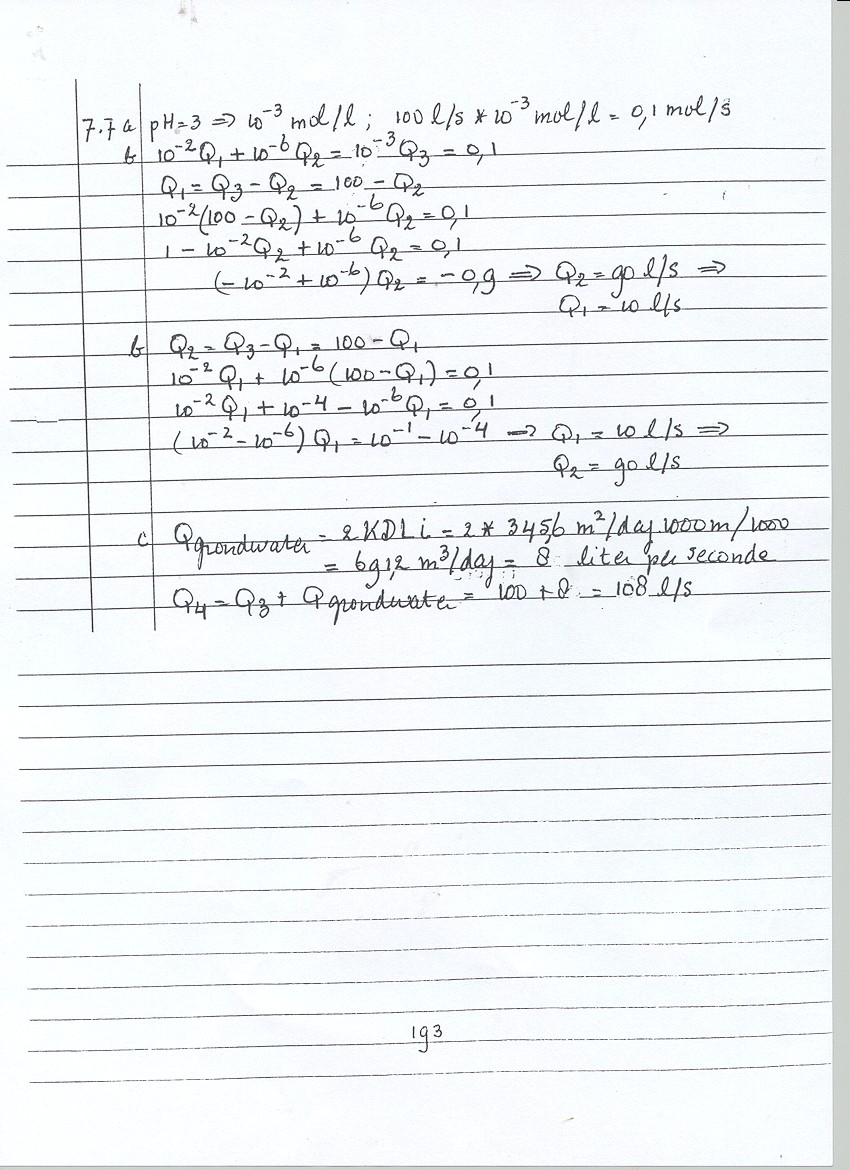 7.7 a pH=3 => 10^-3 mol/l ; 100 l/s * 10^-3 mol/l = 0,1 mol/s
b 10^-2 Q1 + 10^-6 Q2 = 10^-3 Q3 = 0,1
Q1 = Q3 - Q2 = 100 - Q2
10^-2 (100 - Q2) + 10^-6 Q2 = 0,1
1 - 10^-2 Q2 + 10^-6 Q2 = 0,1
(-10^-2 + 10^-6) Q2 = -0,9 => Q2 = 90 l/s =>
Q1 = 10 l/s
b Q2 = Q3 - Q1 = 100 - Q1
10^-2 Q1 + 10^-6 (100 - Q1) = 0,1
10^-2 Q1 + 10^-4 - 10^-6 Q1 = 0,1
(10^-2 - 10^-6) Q1 = 10^-1 - 10^-4 => Q1 = 10 l/s =>
Q2 = 90 l/s
c Qgrondwater = 2KDLi = 2 * 345,6 m²/day 1000m/1000
= 691,2 m³/day = 8 liter per seconde
Q4 = Q3 + Qgrondwater = 100 + 8 = 108 l/s
193